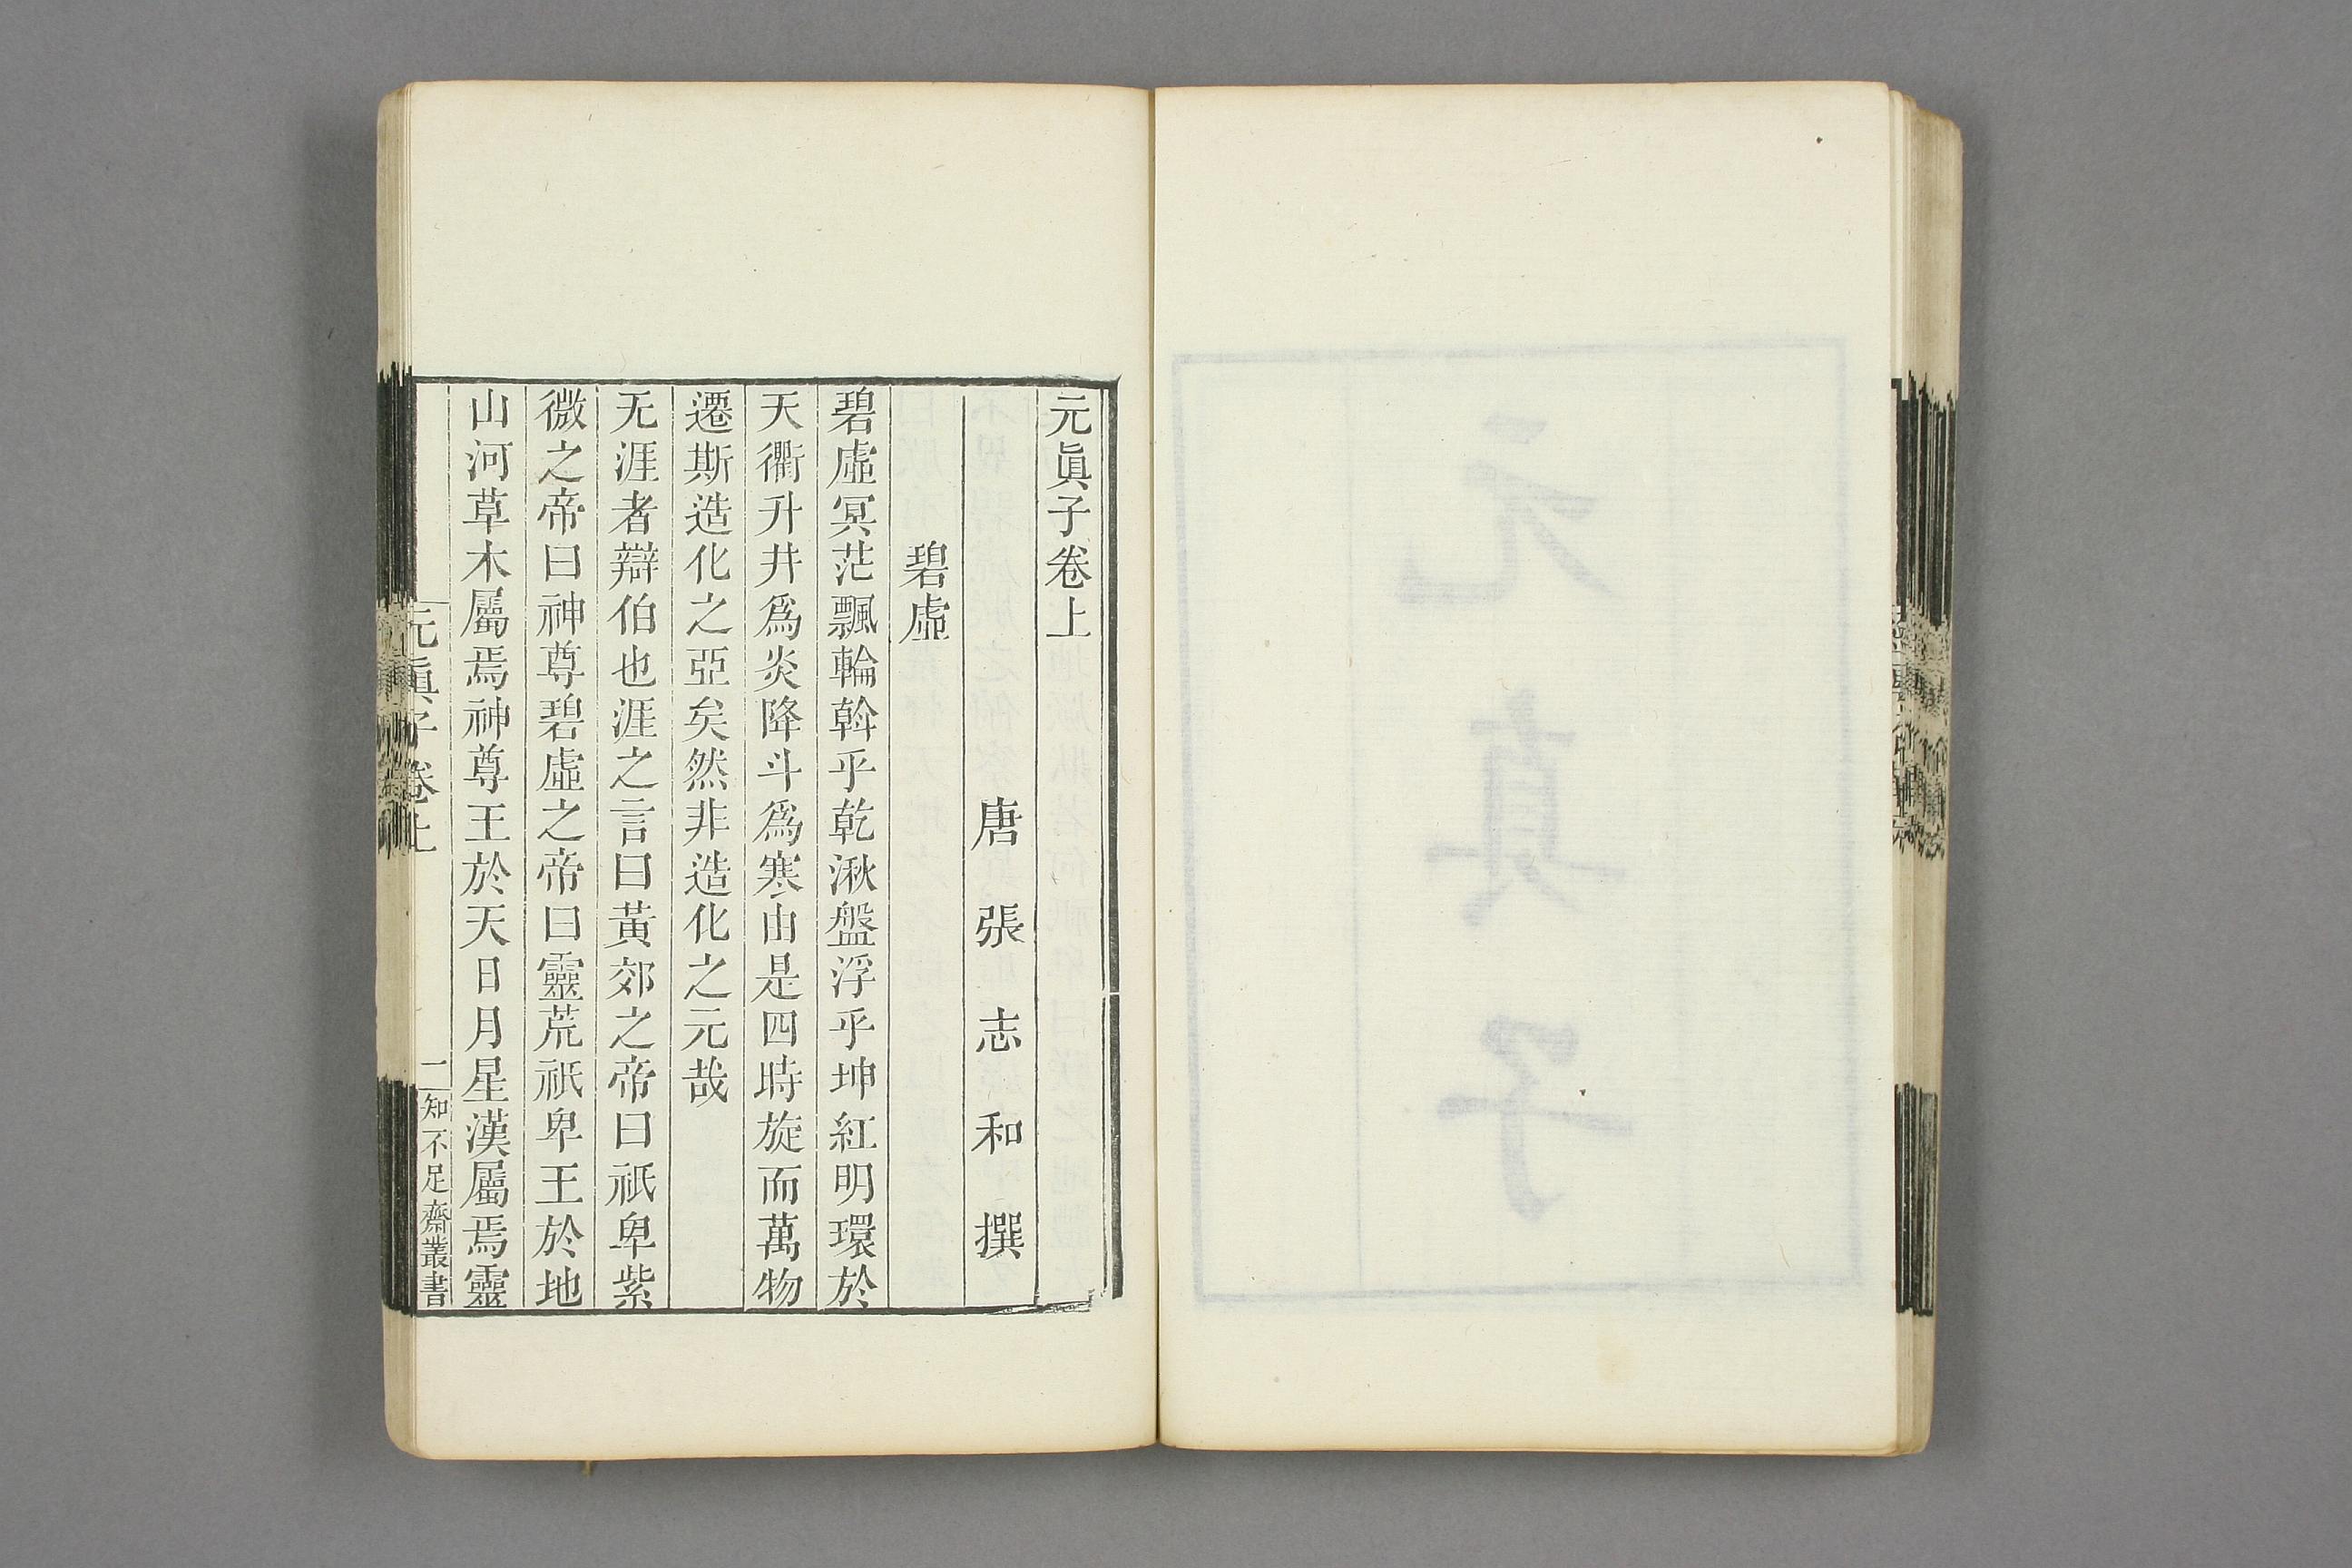 元眞子卷上
唐張志和撰
碧虛
碧虛冥茫飄輪斡乎乾湫盤浮乎坤紅明環於
天衢升井爲炎降斗爲寒由是四時旋而萬物
遷斯造化之亞矣然非造化之元哉
无涯者辯伯也涯之言曰黃郊之帝曰祇卑紫
微之帝曰神尊碧虛之帝曰靈荒祇卑王於地
山河草木屬焉神尊王於天日月星漢屬焉靈
元眞子卷上
一
知不足齋叢書